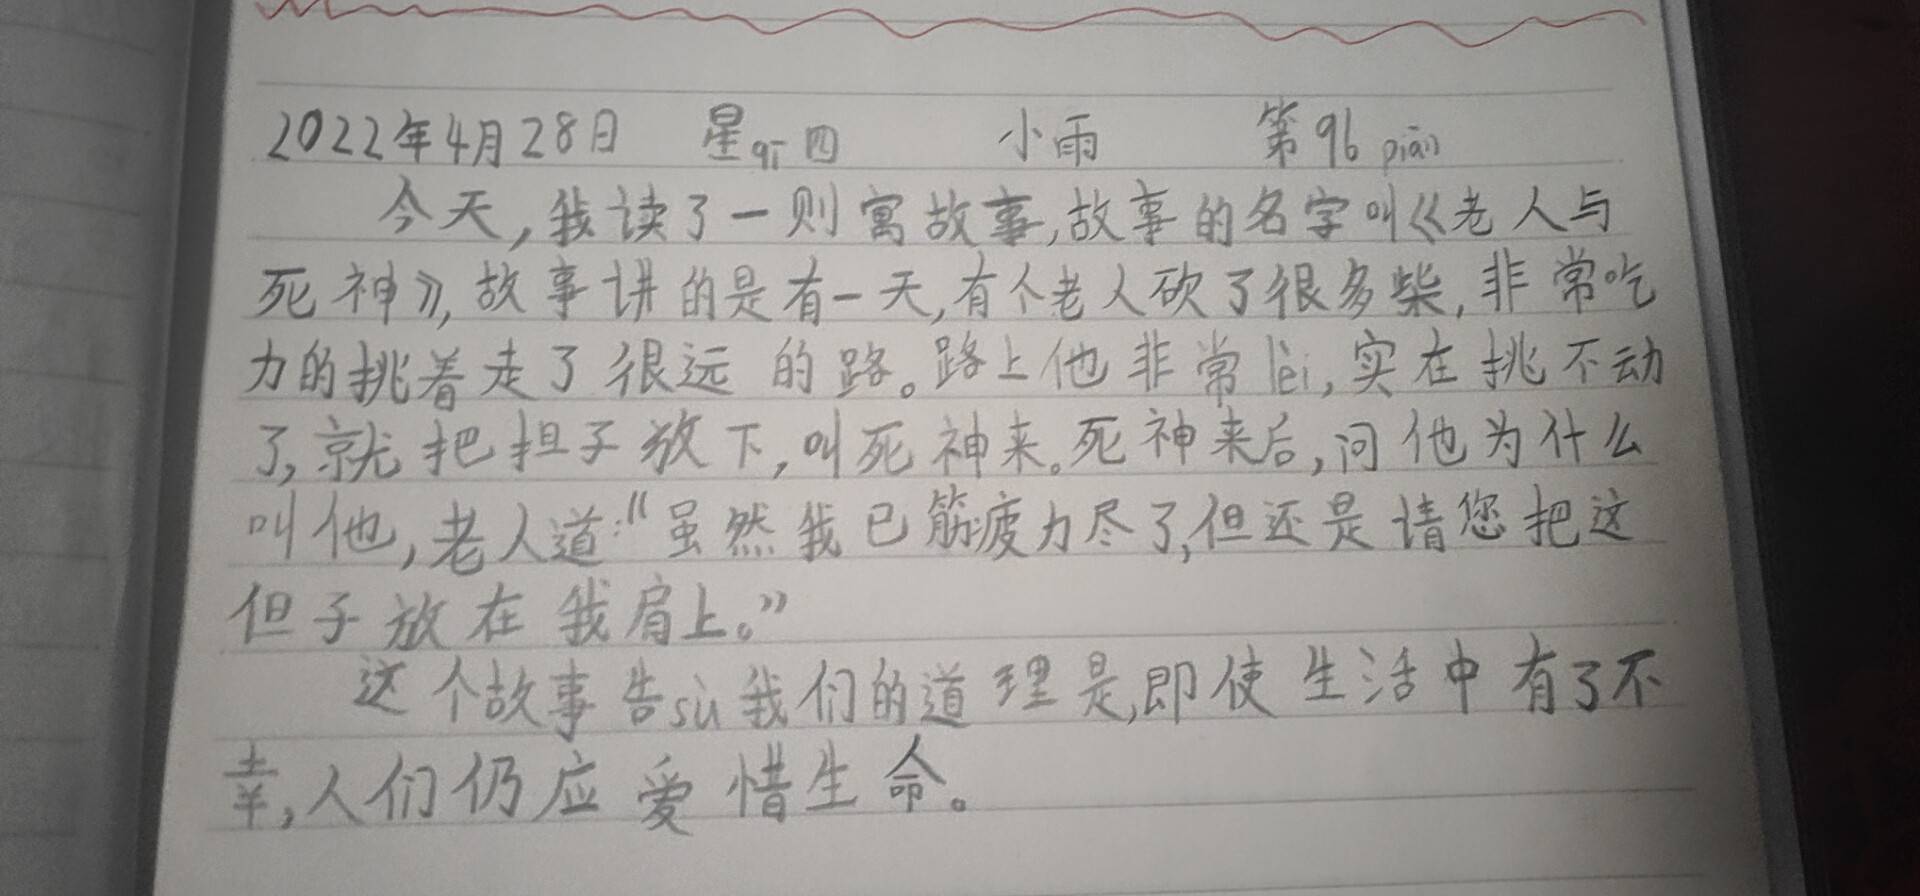 2022年4月28日 星qī四 小雨 第96 piān
今天,我读了一则寓故事,故事的名字叫《老人与
死神》,故事讲的是有一天,有个老人砍了很多柴,非常吃
力的挑着走了很远的路。路上他非常lèi,实在挑不动
了,就把担子放下,叫死神来。死神来后,问他为什么
叫他,老人道:“虽然我已筋疲力尽了,但还是请您把这
但子放在我肩上。”
这个故事告sù我们的道理是,即使生活中有了不
幸,人们仍应爱惜生命。